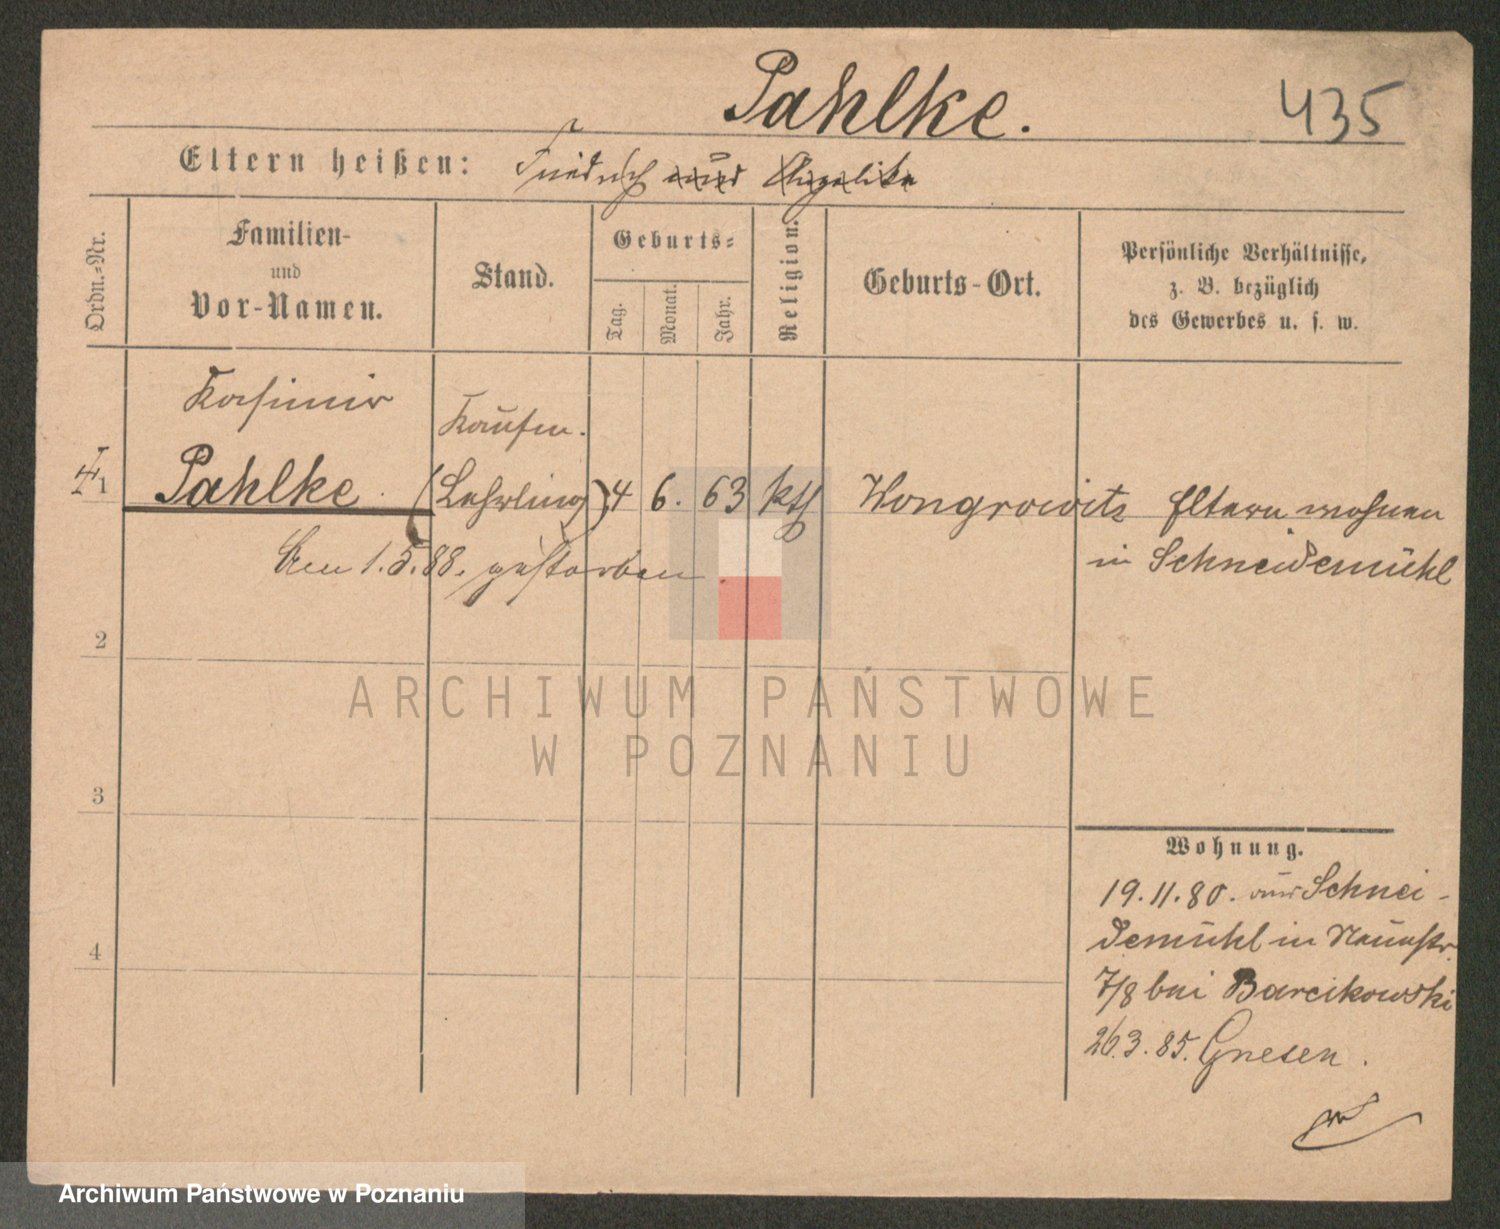 Pahlke.
435
Eltern heißen: Friedrich und Angelika
Ordn.-Nr.
Familien-
und
Vor-Namen.
Stand.
Geburts-
Tag.
Monat.
Jahr.
Religion.
Geburts-Ort.
Persönliche Verhältnisse,
z. B. bezüglich
des Gewerbes u. s. w.
Kasimir
Kaufm.
1 Pahlke. (Lehrling) 4 6. 63 kth Wongrowitz Eltern wohnen
in Schneidemühl
Am 1.5.88. gestorben.
2
ARCHIWUM PAŃSTWOWE
W POZNANIU
3
Wohnung.
19.11.80. aus Schnei-
demühl in Neuestr.
7/8 bei Barcikowski
26.3.85. Gnesen.
4
Archiwum Państwowe w Poznaniu